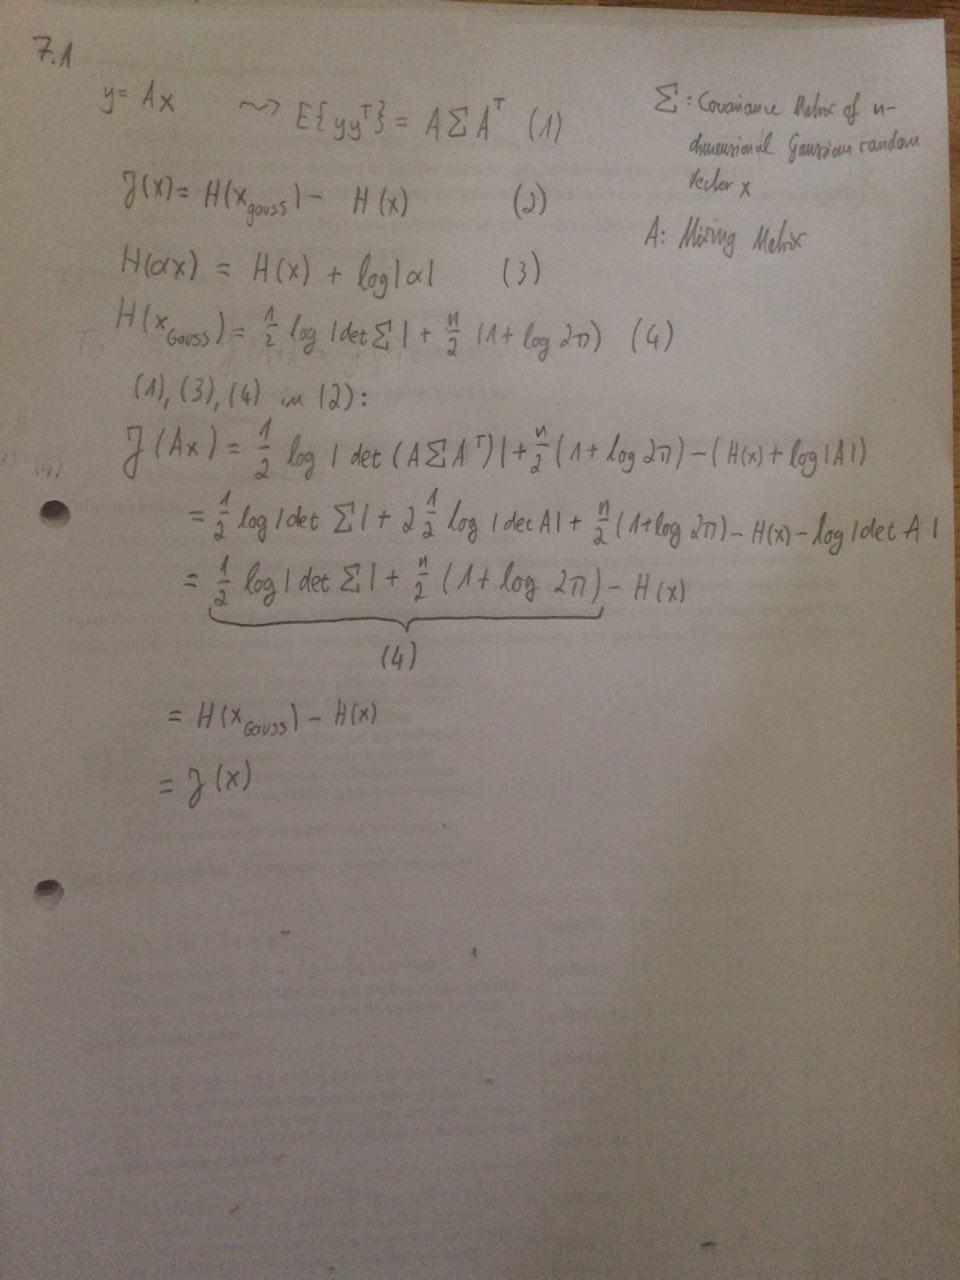 7.1
y = Ax ⤳ E{yyᵀ} = AΣAᵀ (1)
Σ: Covariance Matrix of n-
dimensional Gaussian random
Vector x
A: Mixing Matrix
J(x) = H(x_gauss) - H(x) (2)
H(αx) = H(x) + log|α| (3)
H(x_Gauss) = 1/2 log |det Σ| + n/2 (1 + log 2π) (4)
(1), (3), (4) in (2):
J(Ax) = 1/2 log |det (AΣAᵀ)| + n/2 (1 + log 2π) - (H(x) + log|A|)
= 1/2 log|det Σ| + 2 1/2 log |det A| + n/2 (1+log 2π) - H(x) - log|det A|
= 1/2 log|det Σ| + n/2 (1 + log 2π) - H(x)
(4)
= H(x_Gauss) - H(x)
= J(x)